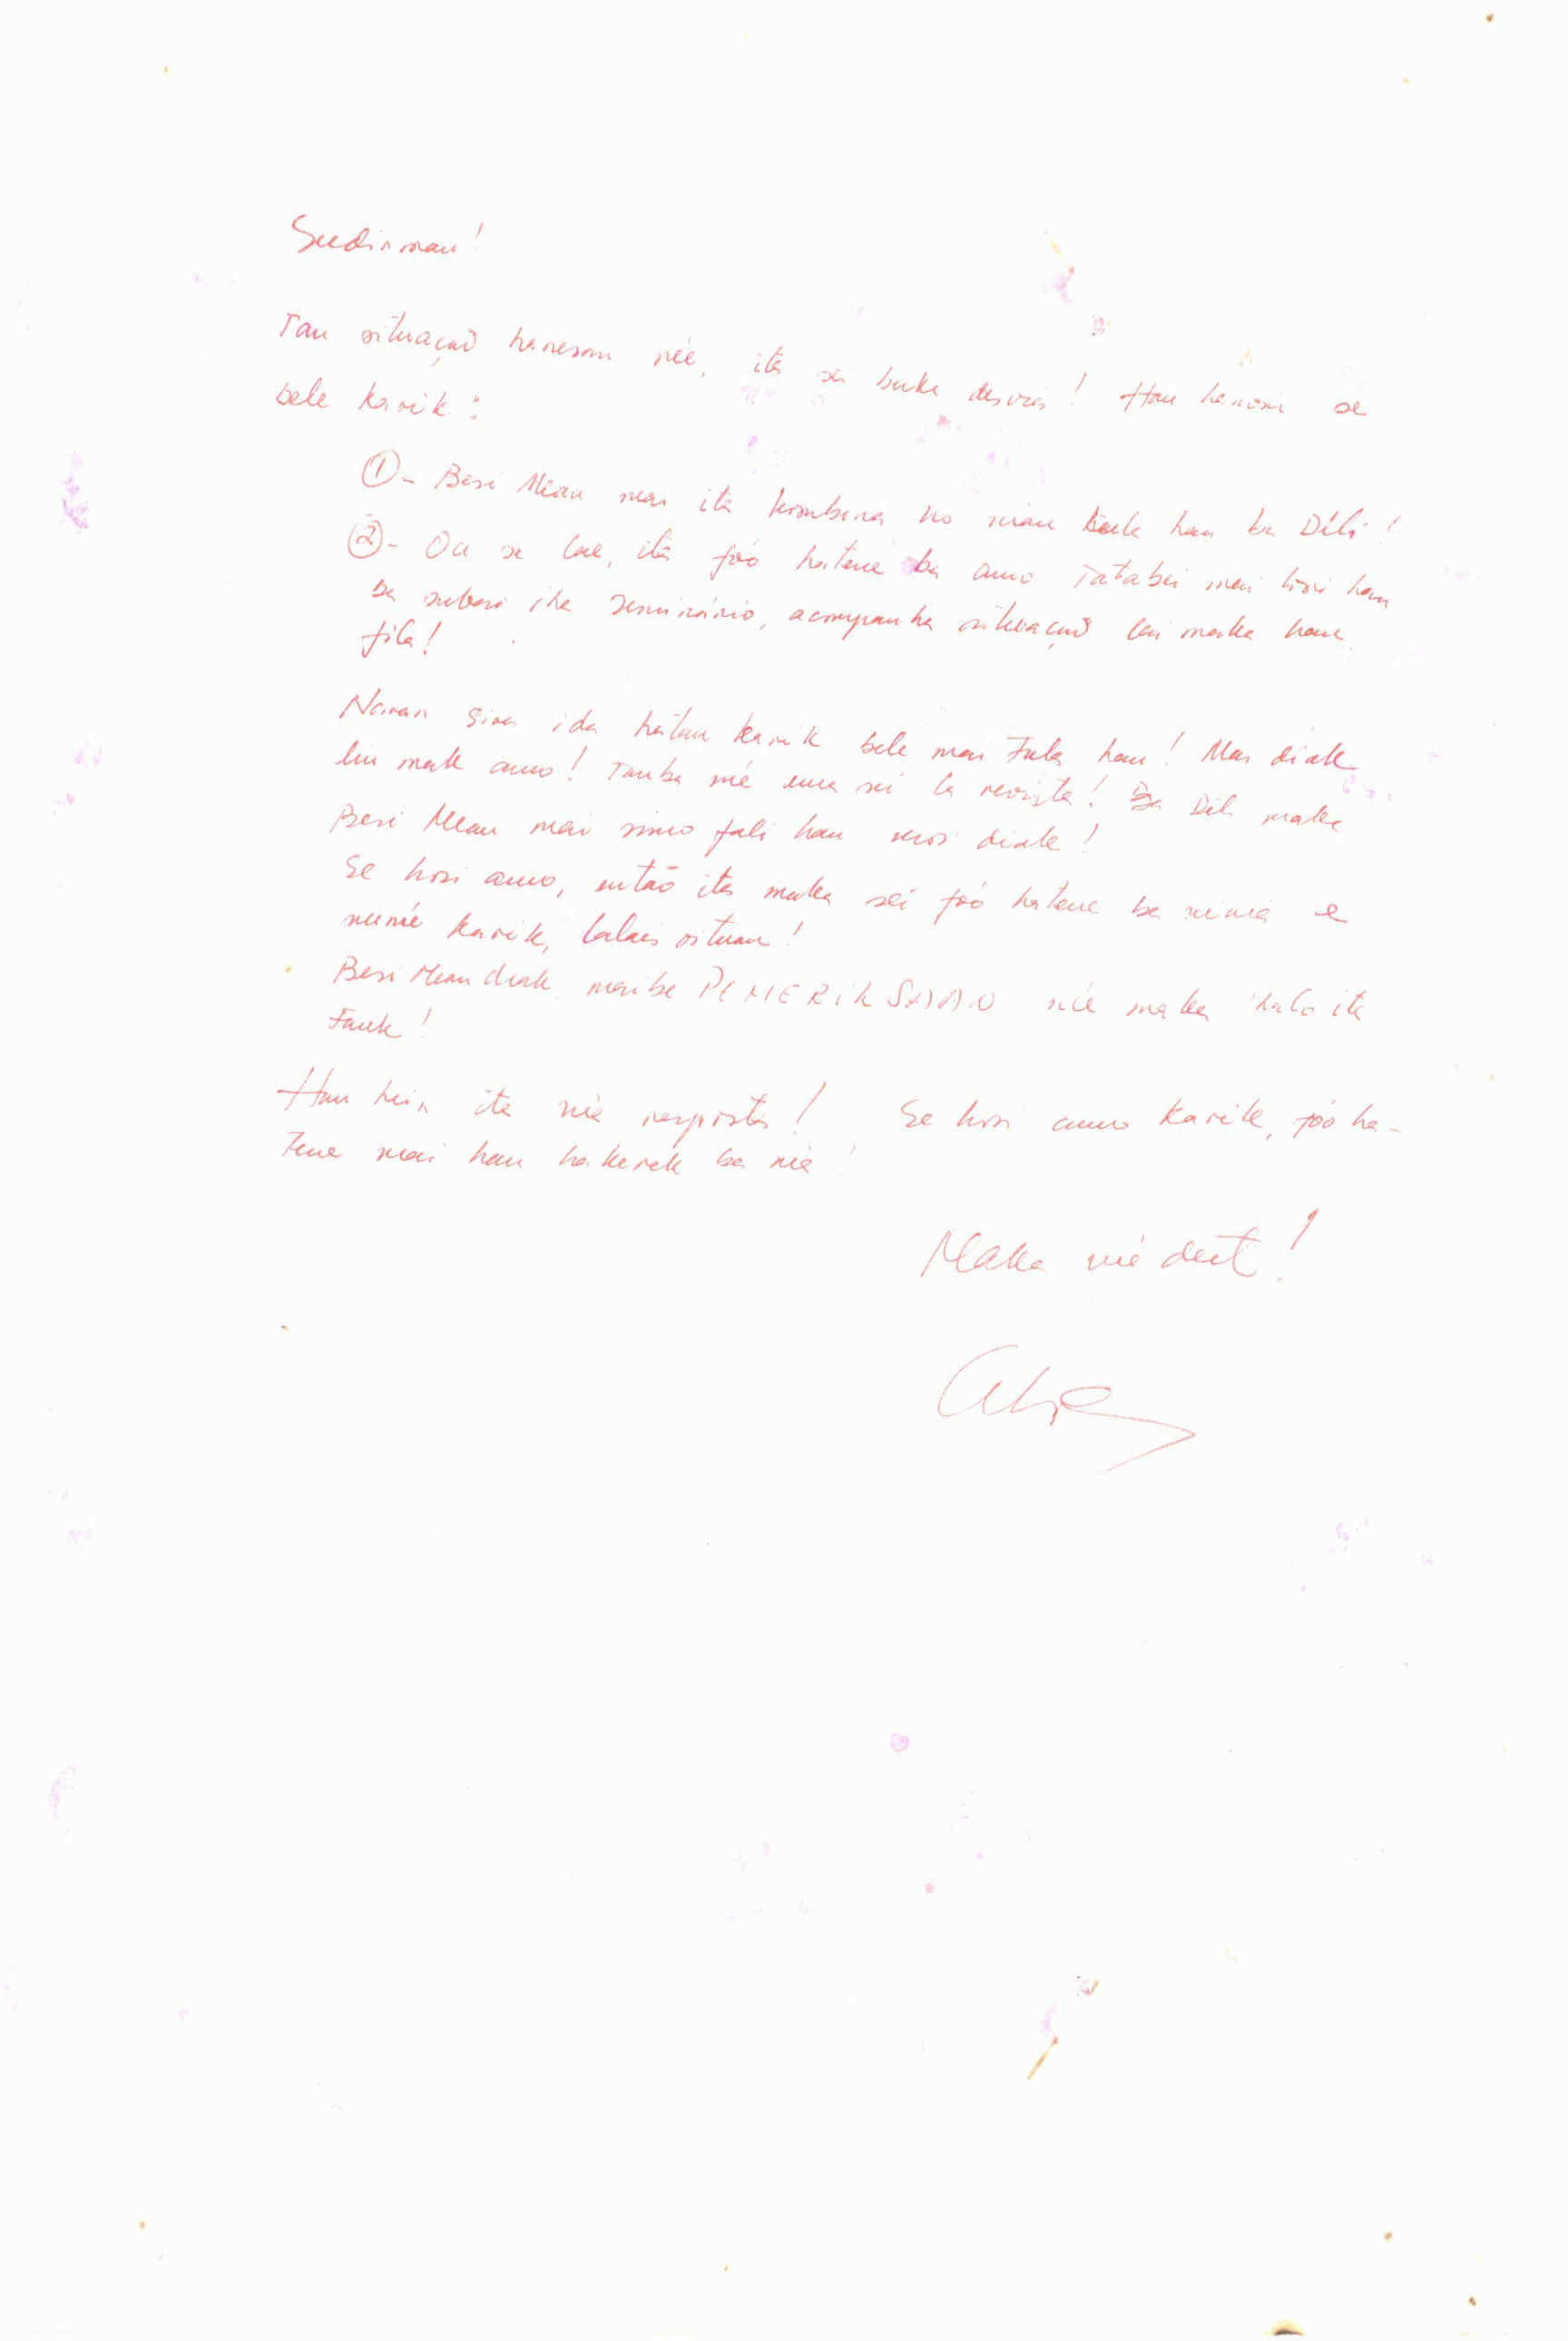 Sudirman!
Tau situaçaõ hanesan née, ita sei buka desvia! Hau hanoin se
bele karik:
①- Besi Mean mai ita kombina no nian tau hau ba Dili!
②- Ou se lae, ita fóo hatene ba amo Tatabei mai hori hau
ba subar iha Seminário, acompanha situaçaõ lai maka hau
fila!
Naran sira ida hatau karik bele mai Fula hau! Mas diak
liu mak amo! Tauba né ema sei la revista! Ba Dili maka
Besi Mean mai simo fali hau mos diak!
Se hori amo, então ita maka sei fóo hatene ba ninia e
nuné karik, lalais oituan!
Besi Mean diak maibe PEMERIKSAAN née maka halo ita
Tauk!
Hau hein ita nia resposta! Se hori amo karik, fóo ha-
tene mai hau hakerek ba nia!
Maka né deit!